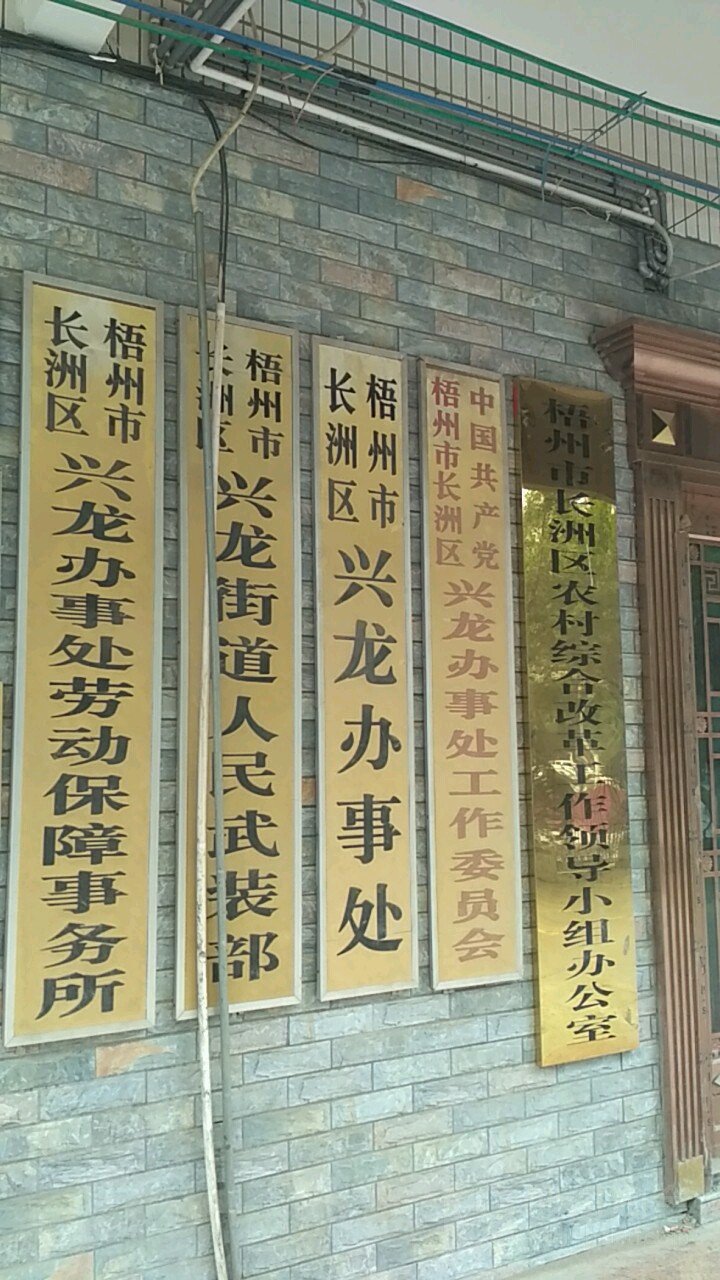 梧州市
长洲区
兴龙办事处劳动保障事务所
梧州市
长洲区
兴龙街道人民武装部
梧州市
长洲区
兴龙办事处
中国共产党
梧州市长洲区
兴龙办事处工作委员会
梧州市长洲区农村综合改革工作领导小组办公室